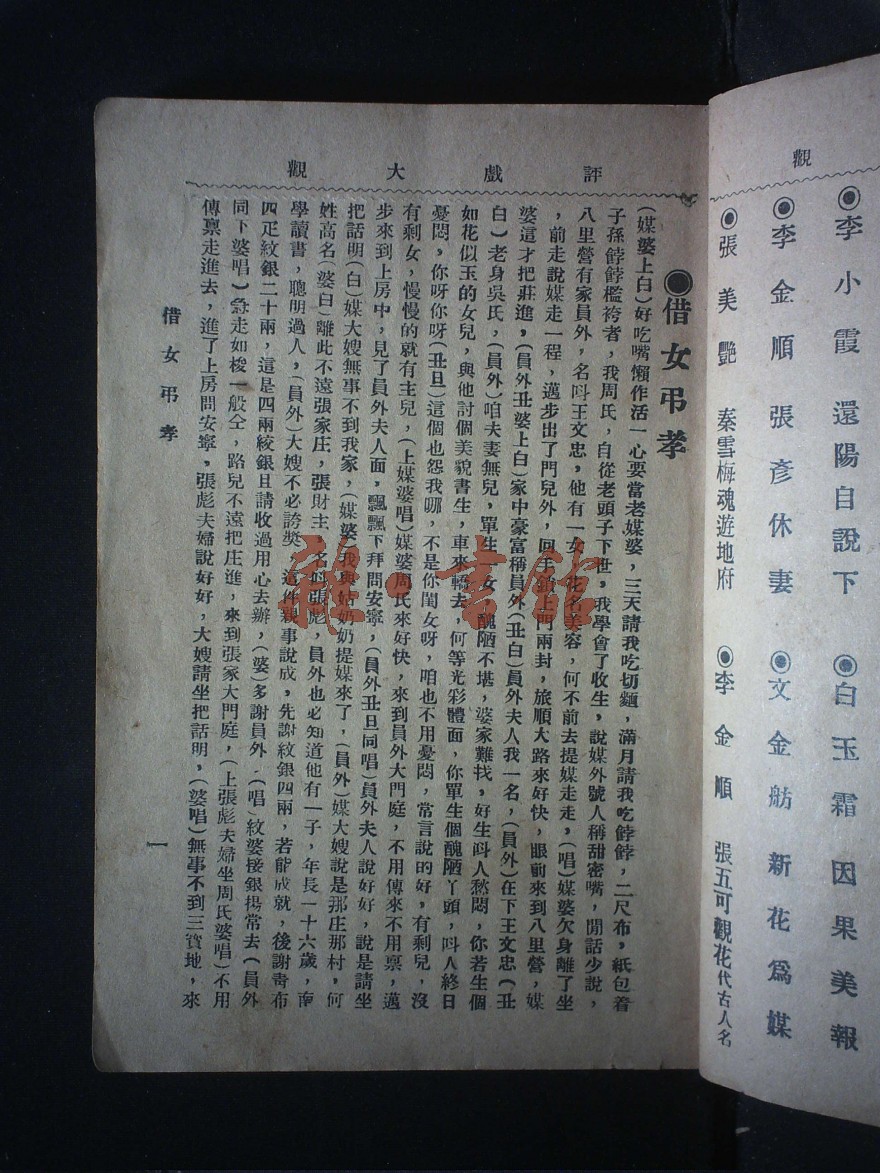 觀
◉李小霞 還陽自說下 ◉白玉霜 因果美報
◉李金順 張彥休妻 ◉文金舫 新花爲媒
◉張美艷 秦雪梅魂遊地府 ◉李金順 張五可觀花代古人名
觀大戲評
◉借女弔孝
(媒婆上白)好吃嘴懶作活一心要當老媒婆，三天請我吃切麵，滿月請我吃餑餑，二尺布，紙包着
子孫餑餑檻袴者，我周氏，自從老頭子下世，我學會了收生，說媒外號人稱甜密嘴，閒話少說，
八里營有家員外，名叫王文忠，他有一女，花名美容，何不前去提媒走走，(唱)媒婆欠身離了坐
，前走說媒走一程，邁步出了門兒外，回手鎖上門兩封，旅順大路來好快，眼前來到八里營，媒
婆這才把莊進，(員外丑婆上白)家中豪富稱員外(丑白)員外夫人我一名，(員外)在下王文忠(丑
白)老身吳氏，(員外)咱夫妻無兒，單生一女，醜陋不堪，婆家難找，好生叫人愁悶，你若生個
如花似玉的女兒，與他討個美貌書生，車來轎去，何等光彩體面，你單生個醜陋丫頭，叫人終日
憂悶，你呀你呀(丑旦)這個也怨我哪，不是你閨女呀，咱也不用憂悶，常言說的好，有剩兒，沒
有剩女，慢慢的就有主兒，(上媒婆唱)媒婆周氏來好快，來到員外大門庭，不用傳來不用禀，邁
步來到上房中，見了員外夫人面，飄飄下拜問安寧，(員外丑旦同唱)員外夫人說好好，說是請坐
把話明(白)媒大嫂無事不到我家，(媒婆)我與姑奶奶提媒來了，(員外)媒大嫂說是那庄那村，何
姓高名(婆白)離此不遠張家庄，張財主，名叫張彪，員外也必知道他有一子，年長一十六歲，南
學讀書，聰明過人，(員外)大嫂不必誇獎，這件親事說成，先謝紋銀四兩，若能成就，後謝奇布
四疋紋銀二十兩，這是四兩紋銀且請收過用心去辦，(婆)多謝員外，(唱)紋婆接銀揚常去(員外
同下婆唱)急走如梭一般仝，路兒不遠把庄進，來到張家大門庭，(上張彪夫婦坐周氏婆唱)不用
傳禀走進去，進了上房問安寧，張彪夫婦說好好，大嫂請坐把話明，(婆唱)無事不到三寶地，來
借女弔孝
一
雜·書館